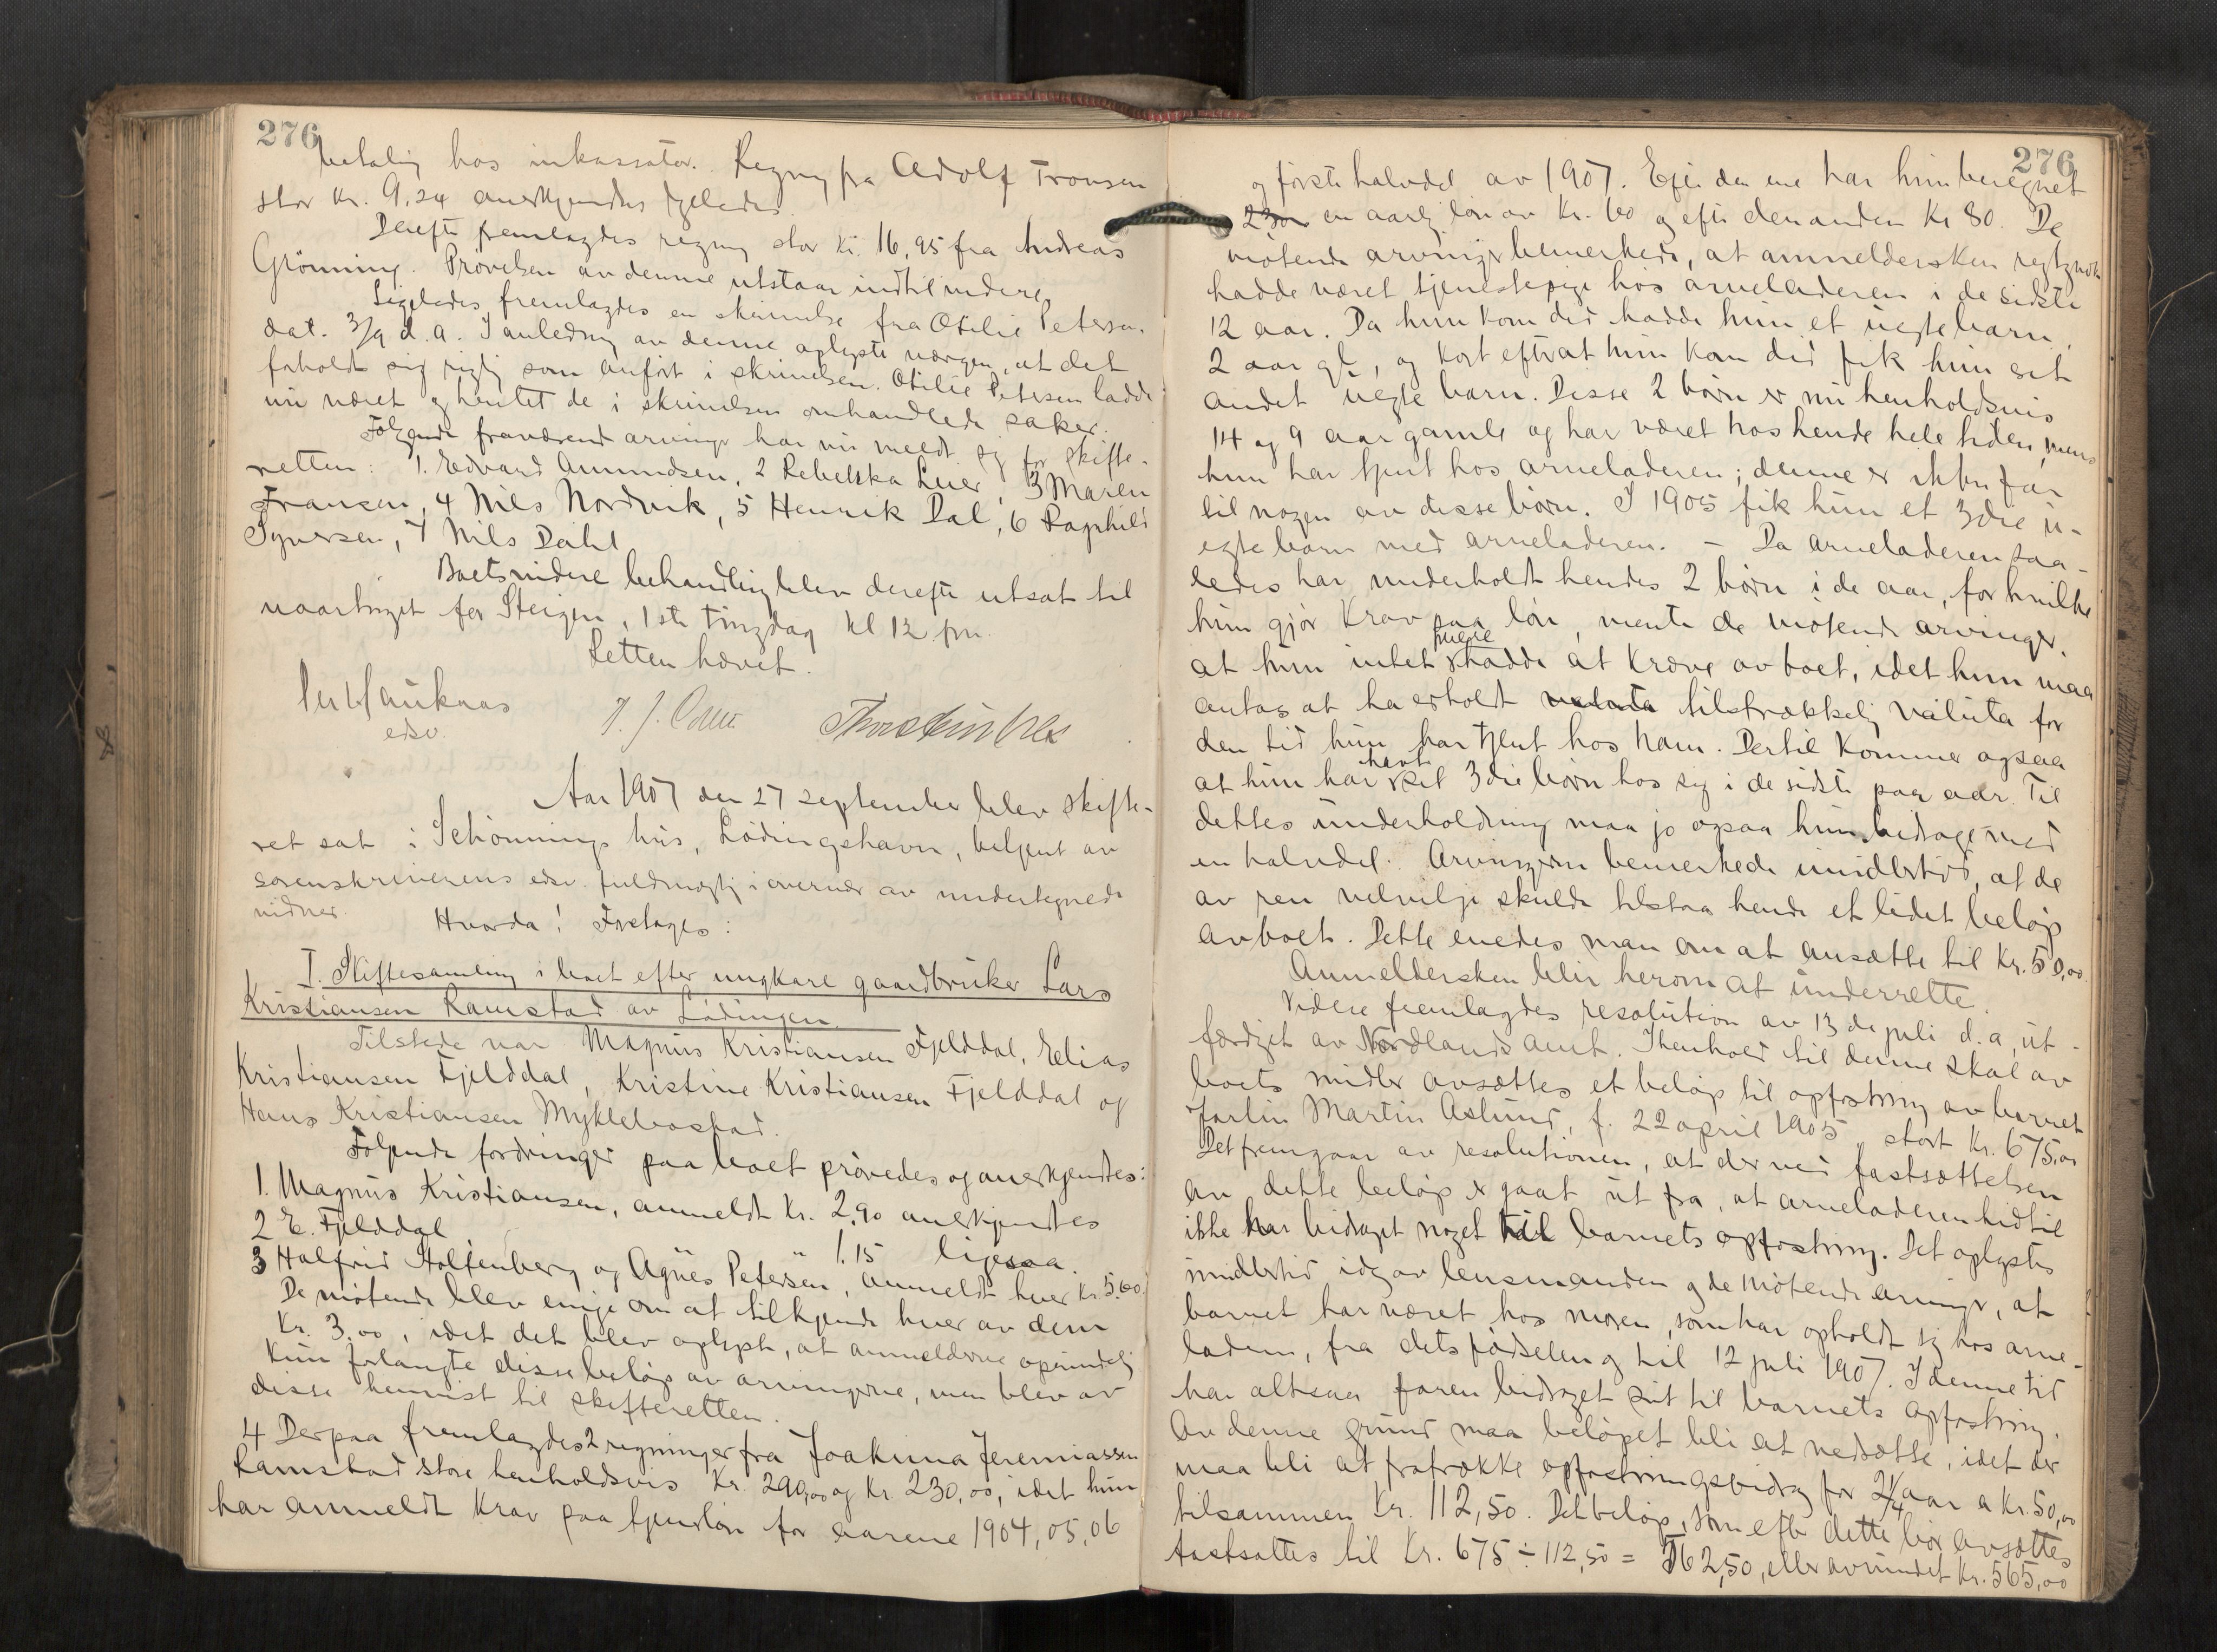 276
betaling hos inkassator. Regning fra Adolf Tronsen
stor kr. 9,24 anerkjendtes ligeledes.
Derefter fremlagdes regning stor kr. 16,95 fra Andreas
Grönning. Prövelsen av denne utstaar indtil videre.
Ligeledes fremlagdes en skrivelse fra Otilie Petersen,
dat. 3/9 d.a. I anledning av denne oplyste værgen, at det
forholdt sig rigtig som anfört i skrivelsen. Otilie Petersen hadde
nu været og hentet de i skrivelsen omhandlede saker.
Fölgende fraværende arvinger har nu meldt sig for skifte-
retten: 1. Edvard Amundsen, 2 Rebekka Luer, 3 Maren
Fransen, 4 Nils Nordvik, 5 Henrik Dal, 6 Ragnhild
Syversen, 7 Nils Dahl
Boets videre behandling blev derefter utsat til
vaartinget for Steigen, 1ste tingdag kl 12 fm.
Retten hævet.
Per Haukaas
edsv.
Aar 1907 den 27 september blev skifte-
ret sat i Schönnings hus, Lödingshavn, betjent av
sorenskriverens edsv. fuldmægtig i overvær av undertegnede
vidner.
Hvorda! Foretages:
I. Skiftesamling i boet efter ungkare gaardbruker Lars
Kristiansen Ramstad av Lödingen
Tilstede var Magnus Kristiansen Fjelddal, Elias
Kristiansen Fjelddal, Kristine Kristiansen Fjelddal og
Hans Kristiansen Myklebostad.
Fölgende fordringer paa boet prövedes og anerkjendtes:
1. Magnus Kristiansen, anmeldt kr. 2,90 anerkjendtes
2 E. Fjelddal " 1.15 ligesaa.
3 Halfrid Holtenberg og Agnes Petersen, anmeldt hver kr 5.00.
De mötende blev enige om at tilkjende hver av dem
kr. 3.00, idet det blev oplyst, at anmelderne oprindelig
kun forlangte disse beløp av arvingerne, men blev av
disse henvist til skifteretten.
4 Derpaa fremlagdes 2 regninger fra Joakima Jeremiassen
Ramstad store henholdsvis kr. 290,00 og kr. 230,00, idet hun
har anmeldt krav paa tjenerlön for aarene 1904, 05, 06
276
og förste halvdel av 1907. Efter den ene har hun beregnet
230 en aarlig lön av kr. 60 og efter den anden kr 80. De
mötende arvinger bemerkede, at anmeldersken rigtignok
hadde været tjenestepige hos arveladeren i de sidste
12 aar. Da hun kom did hadde hun et uegte barn,
2 aar gl., og kort efterat hun kom did fik hun sit
andet uegte barn. Disse 2 börn er nu henholdsvis
14 og 9 aar gamle og har været hos hende hele tiden, mens
hun har tjent hos arveladeren; denne er ikke far
til nogen av disse börn. I 1905 fik hun et 3die u-
egte barn med arveladeren. – Da arveladeren saa-
ledes har underholdt hendes 2 börn i de aar, for hvilke
hun gjör krav paa lön, mente de mötende arvinger,
at hun intet mere hadde at kræve av boet, idet hun maa
antas at ha erholdt valuta tilstrækkelig valuta for
den tid hun har tjent hos ham. Dertil kommer ogsaa
at hun har havt sit 3die börn hos sig i de sidste par aar. Til
dettes underholdning maa jo ogsaa hun bidrage med
en halvdel. Arvingerne bemerkede imidlertid, at de
av ren velvilje skulde tilstaa hende et lidet belöp
av boet. Dette enedes man om at ansætte til kr. 50,00.
Anmeldersken blir herom at underrette.
Videre fremlagdes resolution av 13de juli d.a, ut-
færdiget av Nordlands amt. I henhold til denne skal av
boets midler avsættes et belöp til opfostring av barnet
Jarlin Martin Aslund, f. 22 april 1905, stort kr. 675,00
Det fremgaar av resolutionen, at der ved fastsættelsen
av dette belöp er gaat ut fra, at arveladeren hidtil
ikke har bidraget noget til barnets opfostring. Det oplystes
imidlertid idag av lensmanden og de mötende arvinger, at
barnet har været hos moren, som har opholdt sig hos arve-
laderen, fra dets födselen og til 12 juli 1907. I denne tid
har altsaa faren bidraget sit til barnets opfostring.
Av denne grund maa belöpet bli at nedsætte, idet der
maa bli at fratrække opfostringsbidrag for 2 1/4 aar a kr. 50,00
tilsammen kr. 112,50. Det belöp, som efter dette bör avsættes
fastsattes til kr. 675 ÷ 112,50 = 562,50, eller avrundet kr. 565,00